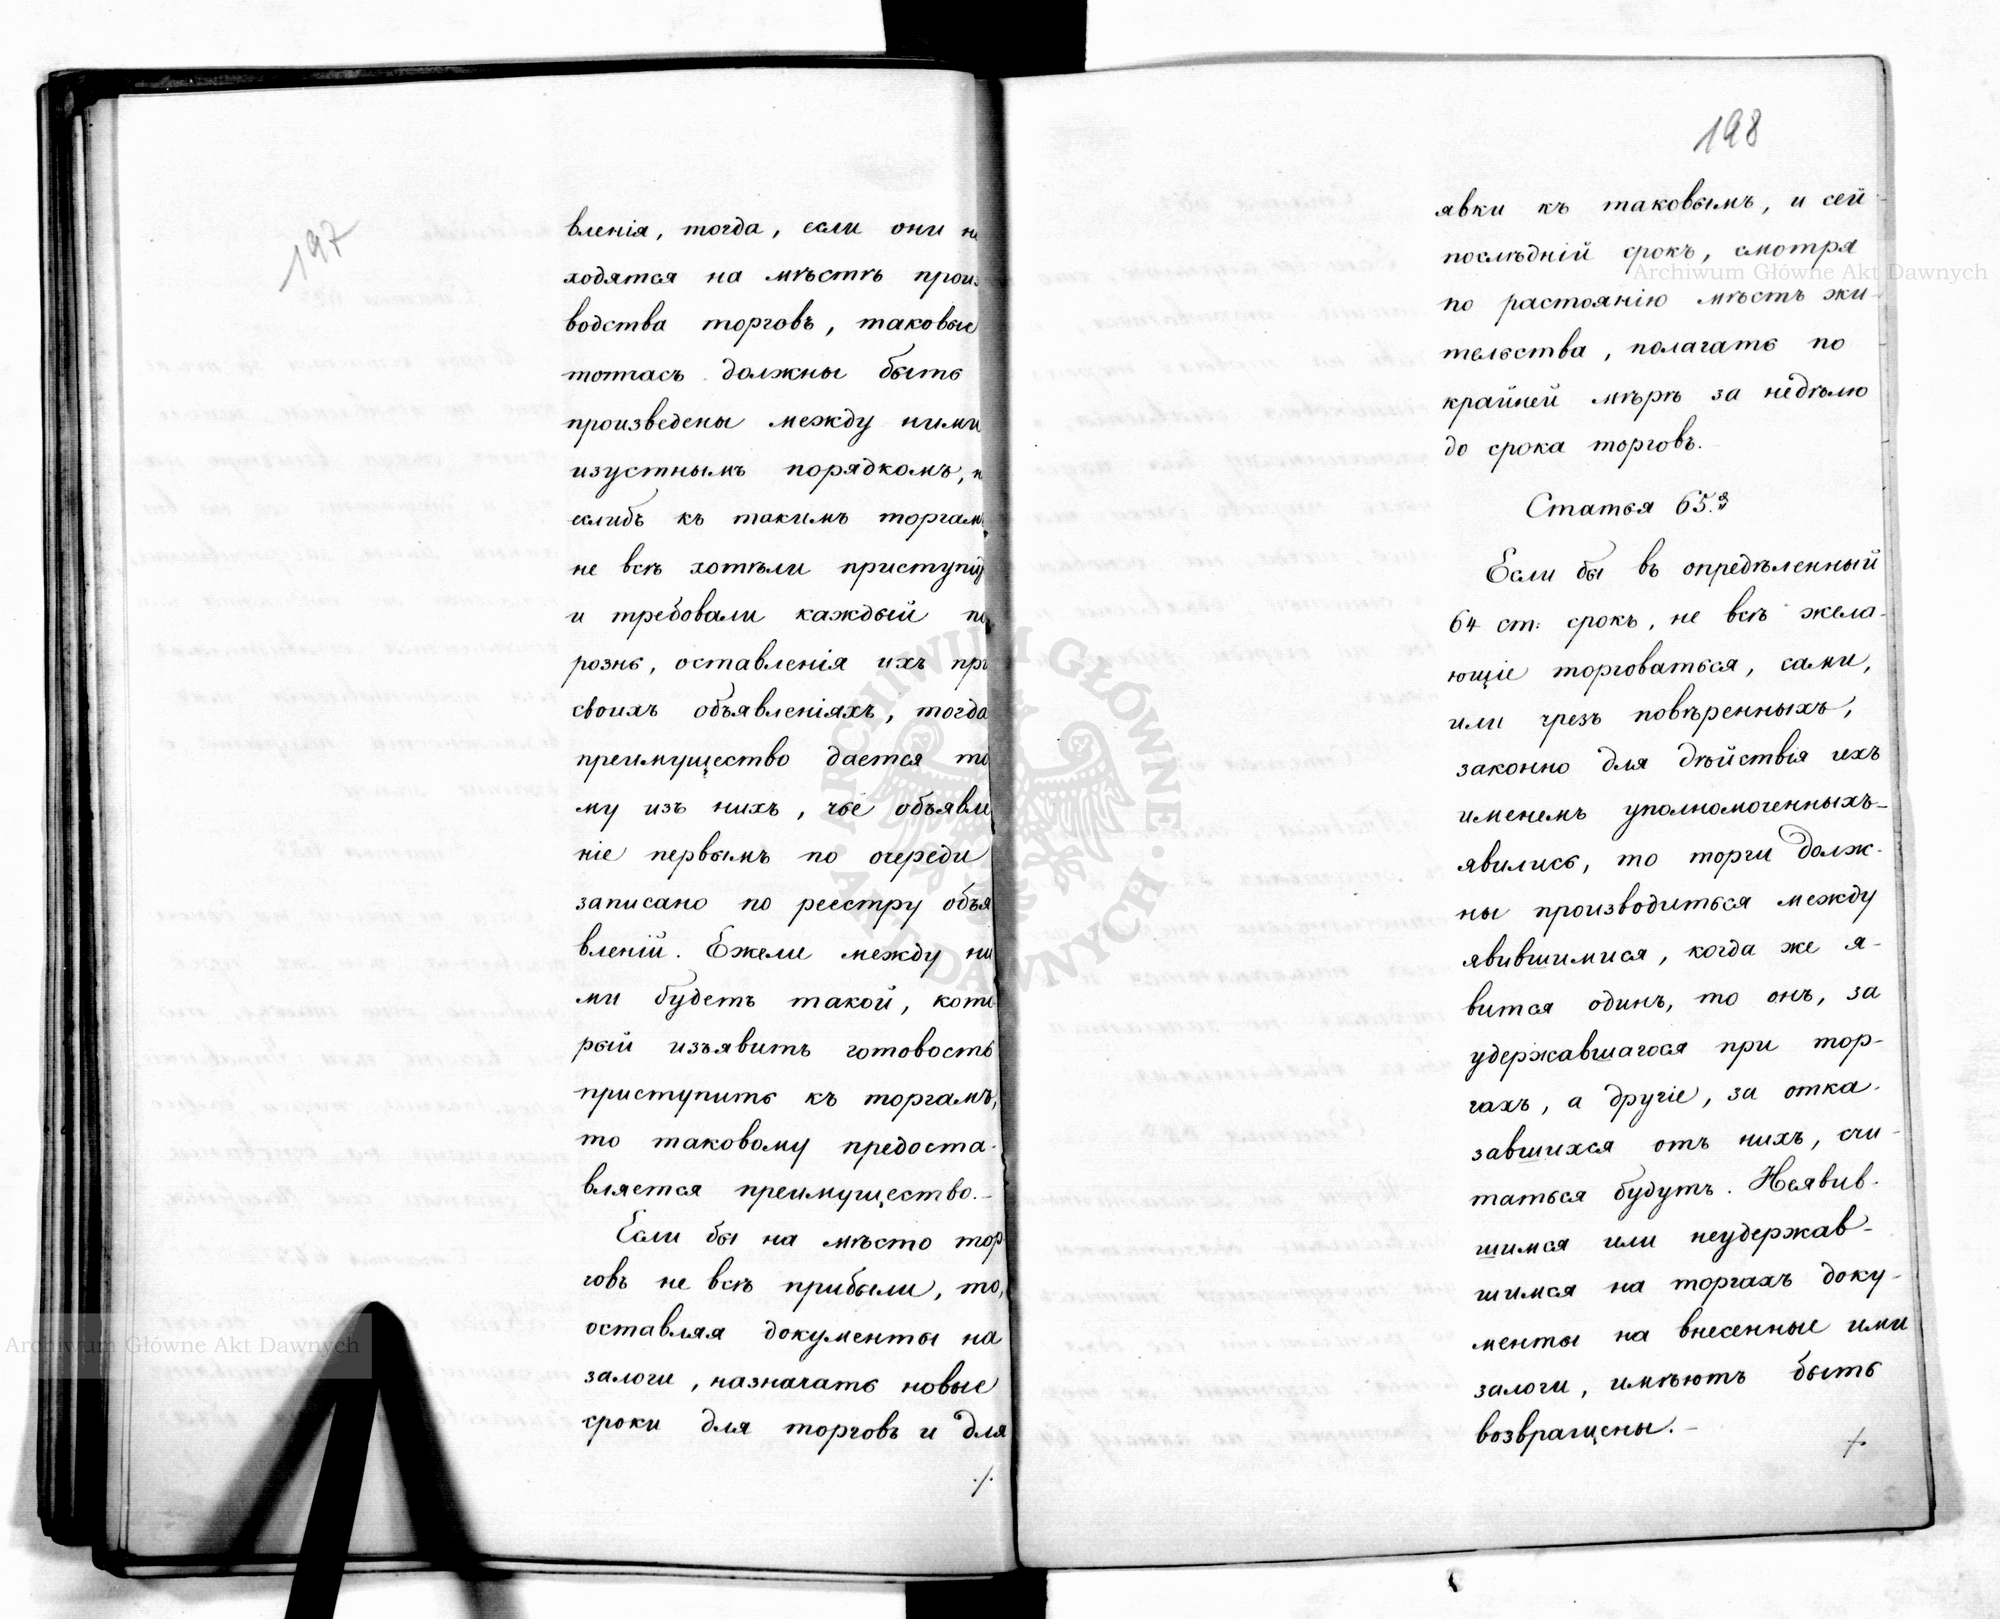 197
вленія, тогда, если они на
ходятся на мѣстѣ произ
водства торговъ, таковые
тотчасъ должны быть
произведены между ними
изустнымъ порядкомъ, и
еслибъ къ такимъ торгамъ
не всѣ хотѣли приступить
и требовали каждый по
рознь, оставленія ихъ при
своихъ объявленіяхъ, тогда
преимущество дается то
му изъ нихъ, чье объявле
ніе первымъ по очереди
записано по реестру объя
вленій. Ежели между ни
ми будетъ такой, кото
рый изъявитъ готовость
приступить къ торгамъ,
то таковому предоста-
вляется преимущество.-
Если бы на мѣсто тор
говъ не всѣ прибыли, то,
оставляя документы на
залоги, назначать новые
сроки для торговъ и для
./.
198
явки къ таковымъ, и сей
послѣдній срокъ, смотря
по растоянію мѣстъ жи-
тельства, полагать по
крайней мѣрѣ за недѣлю
до срока торговъ.-
Статья 65.я
Если бы въ опредѣленный
64 ст: срокъ, не всѣ жела-
ющіе торговаться, сами,
или чрезъ повѣренныхъ,
законно для дѣйствія ихъ
именемъ уполномоченныхъ-
явились, то торги долж-
ны производиться между
явившимися, когда же я-
вится одинъ, то онъ, за
удержавшагося при тор-
гахъ, а другіе, за отка-
завшихся отъ нихъ, счи-
таться будутъ. Неявив-
шимся или неудержав-
шимся на торгахъ доку-
менты на внесенные ими
залоги, имѣютъ быть
возвращены.-
./.
Archiwum Główne Akt Dawnych
Archiwum Główne Akt Dawnych
ARCHIWUM GŁÓWNE
AKT DAWNYCH